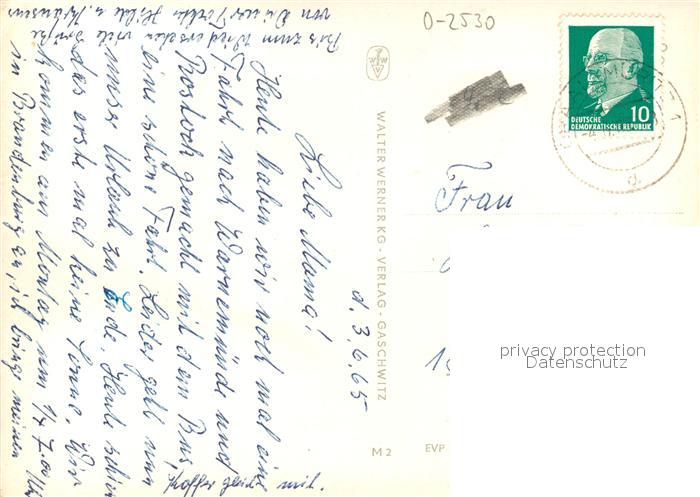 d. 3.6.65
Liebe Mama!
Heute haben wir noch mal eine
Fahrt nach Warnemünde und
Rostock gemacht mit dem Bus,
eine schöne Fahrt. Leider geht nun
unser Urlaub zu Ende. Heute schien
das erste mal keine Sonne. Wir
kommen am Montag um 1/4 7.00 Uhr
in Brandenburg an, ich bringe meinen
Koffer gleich mit.
Bis zum Wiedersehen viele Grüße
von Deiner Tochter Hilde u.
WALTER WERNER KG - VERLAG - GASCHWITZ
M 2
EVP
0-2530
DEUTSCHE
DEMOKRATISCHE REPUBLIK
10
Frau
privacy protection
Datenschutz